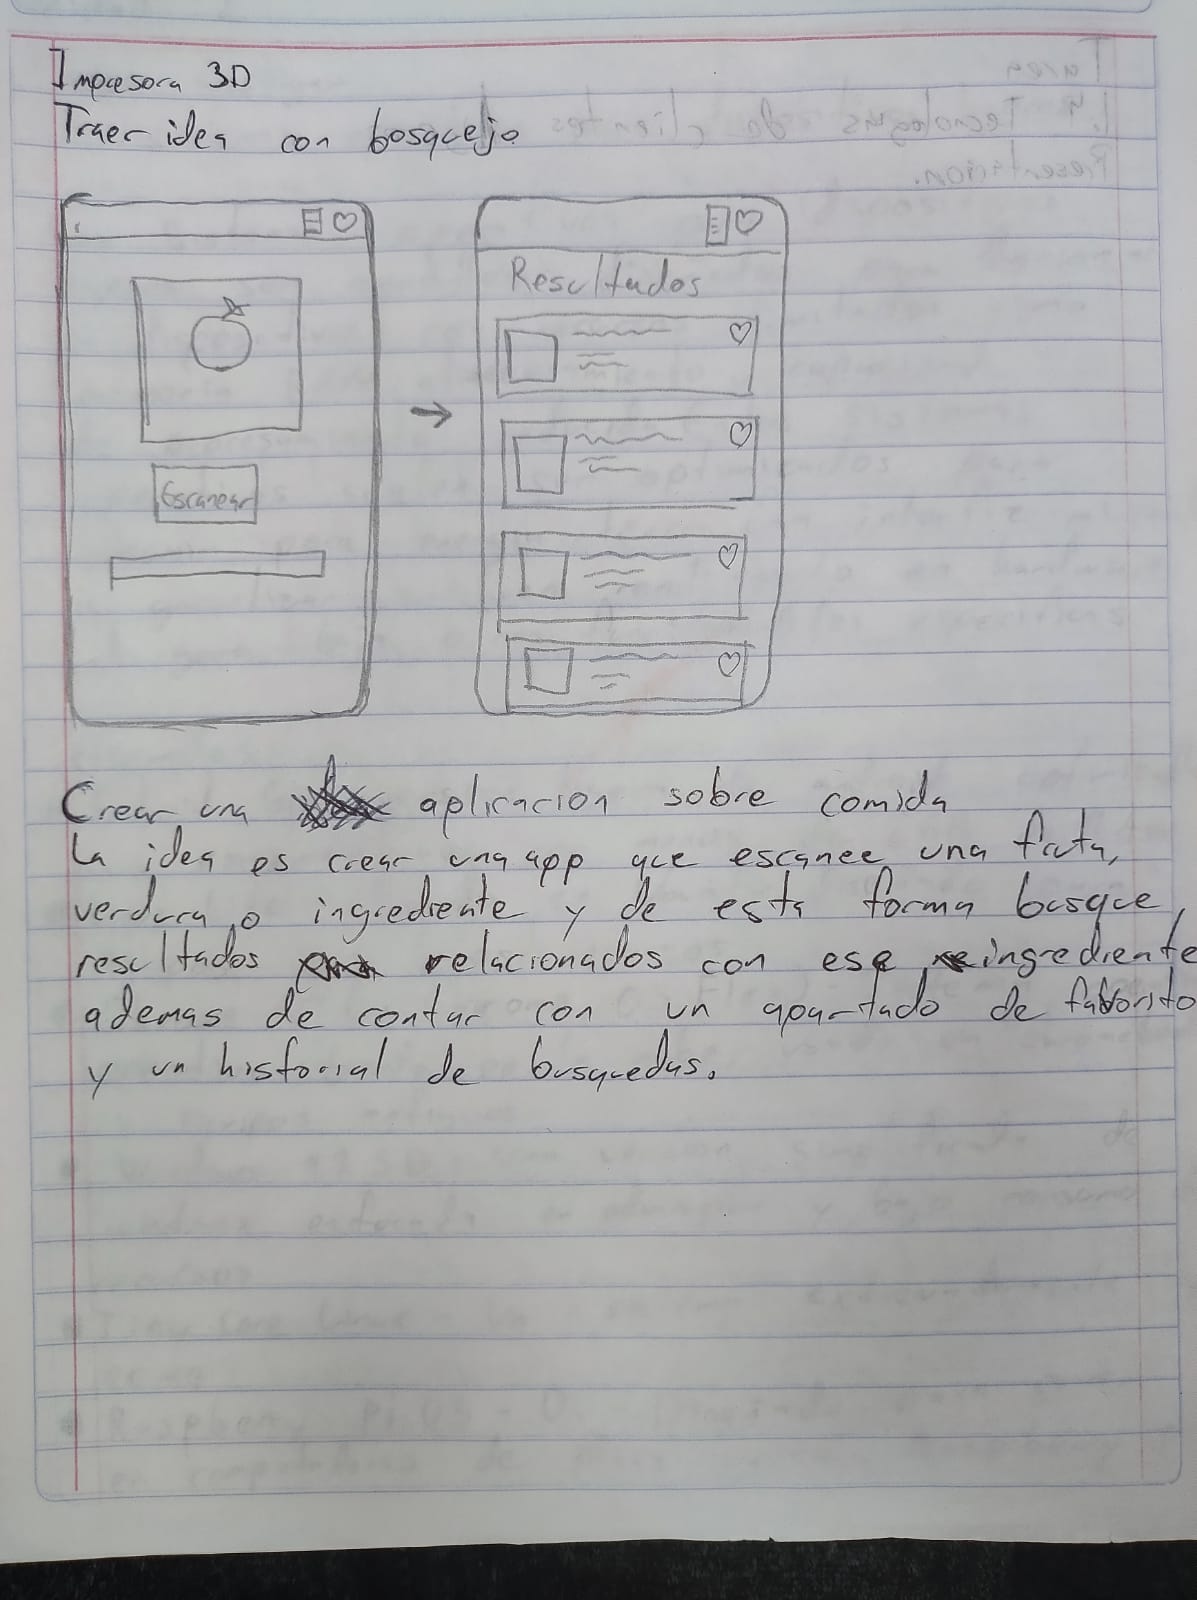 Impresora 3D
Traer idea con bosquejo
Resultados
Escanear
Crear una aplicacion sobre comida
La idea es crear una app que escanee una fruta,
verdura o ingrediente y de esta forma busque
resultados relacionados con ese ingrediente
ademas de contar con un apartado de faborito
y un historial de busquedas.